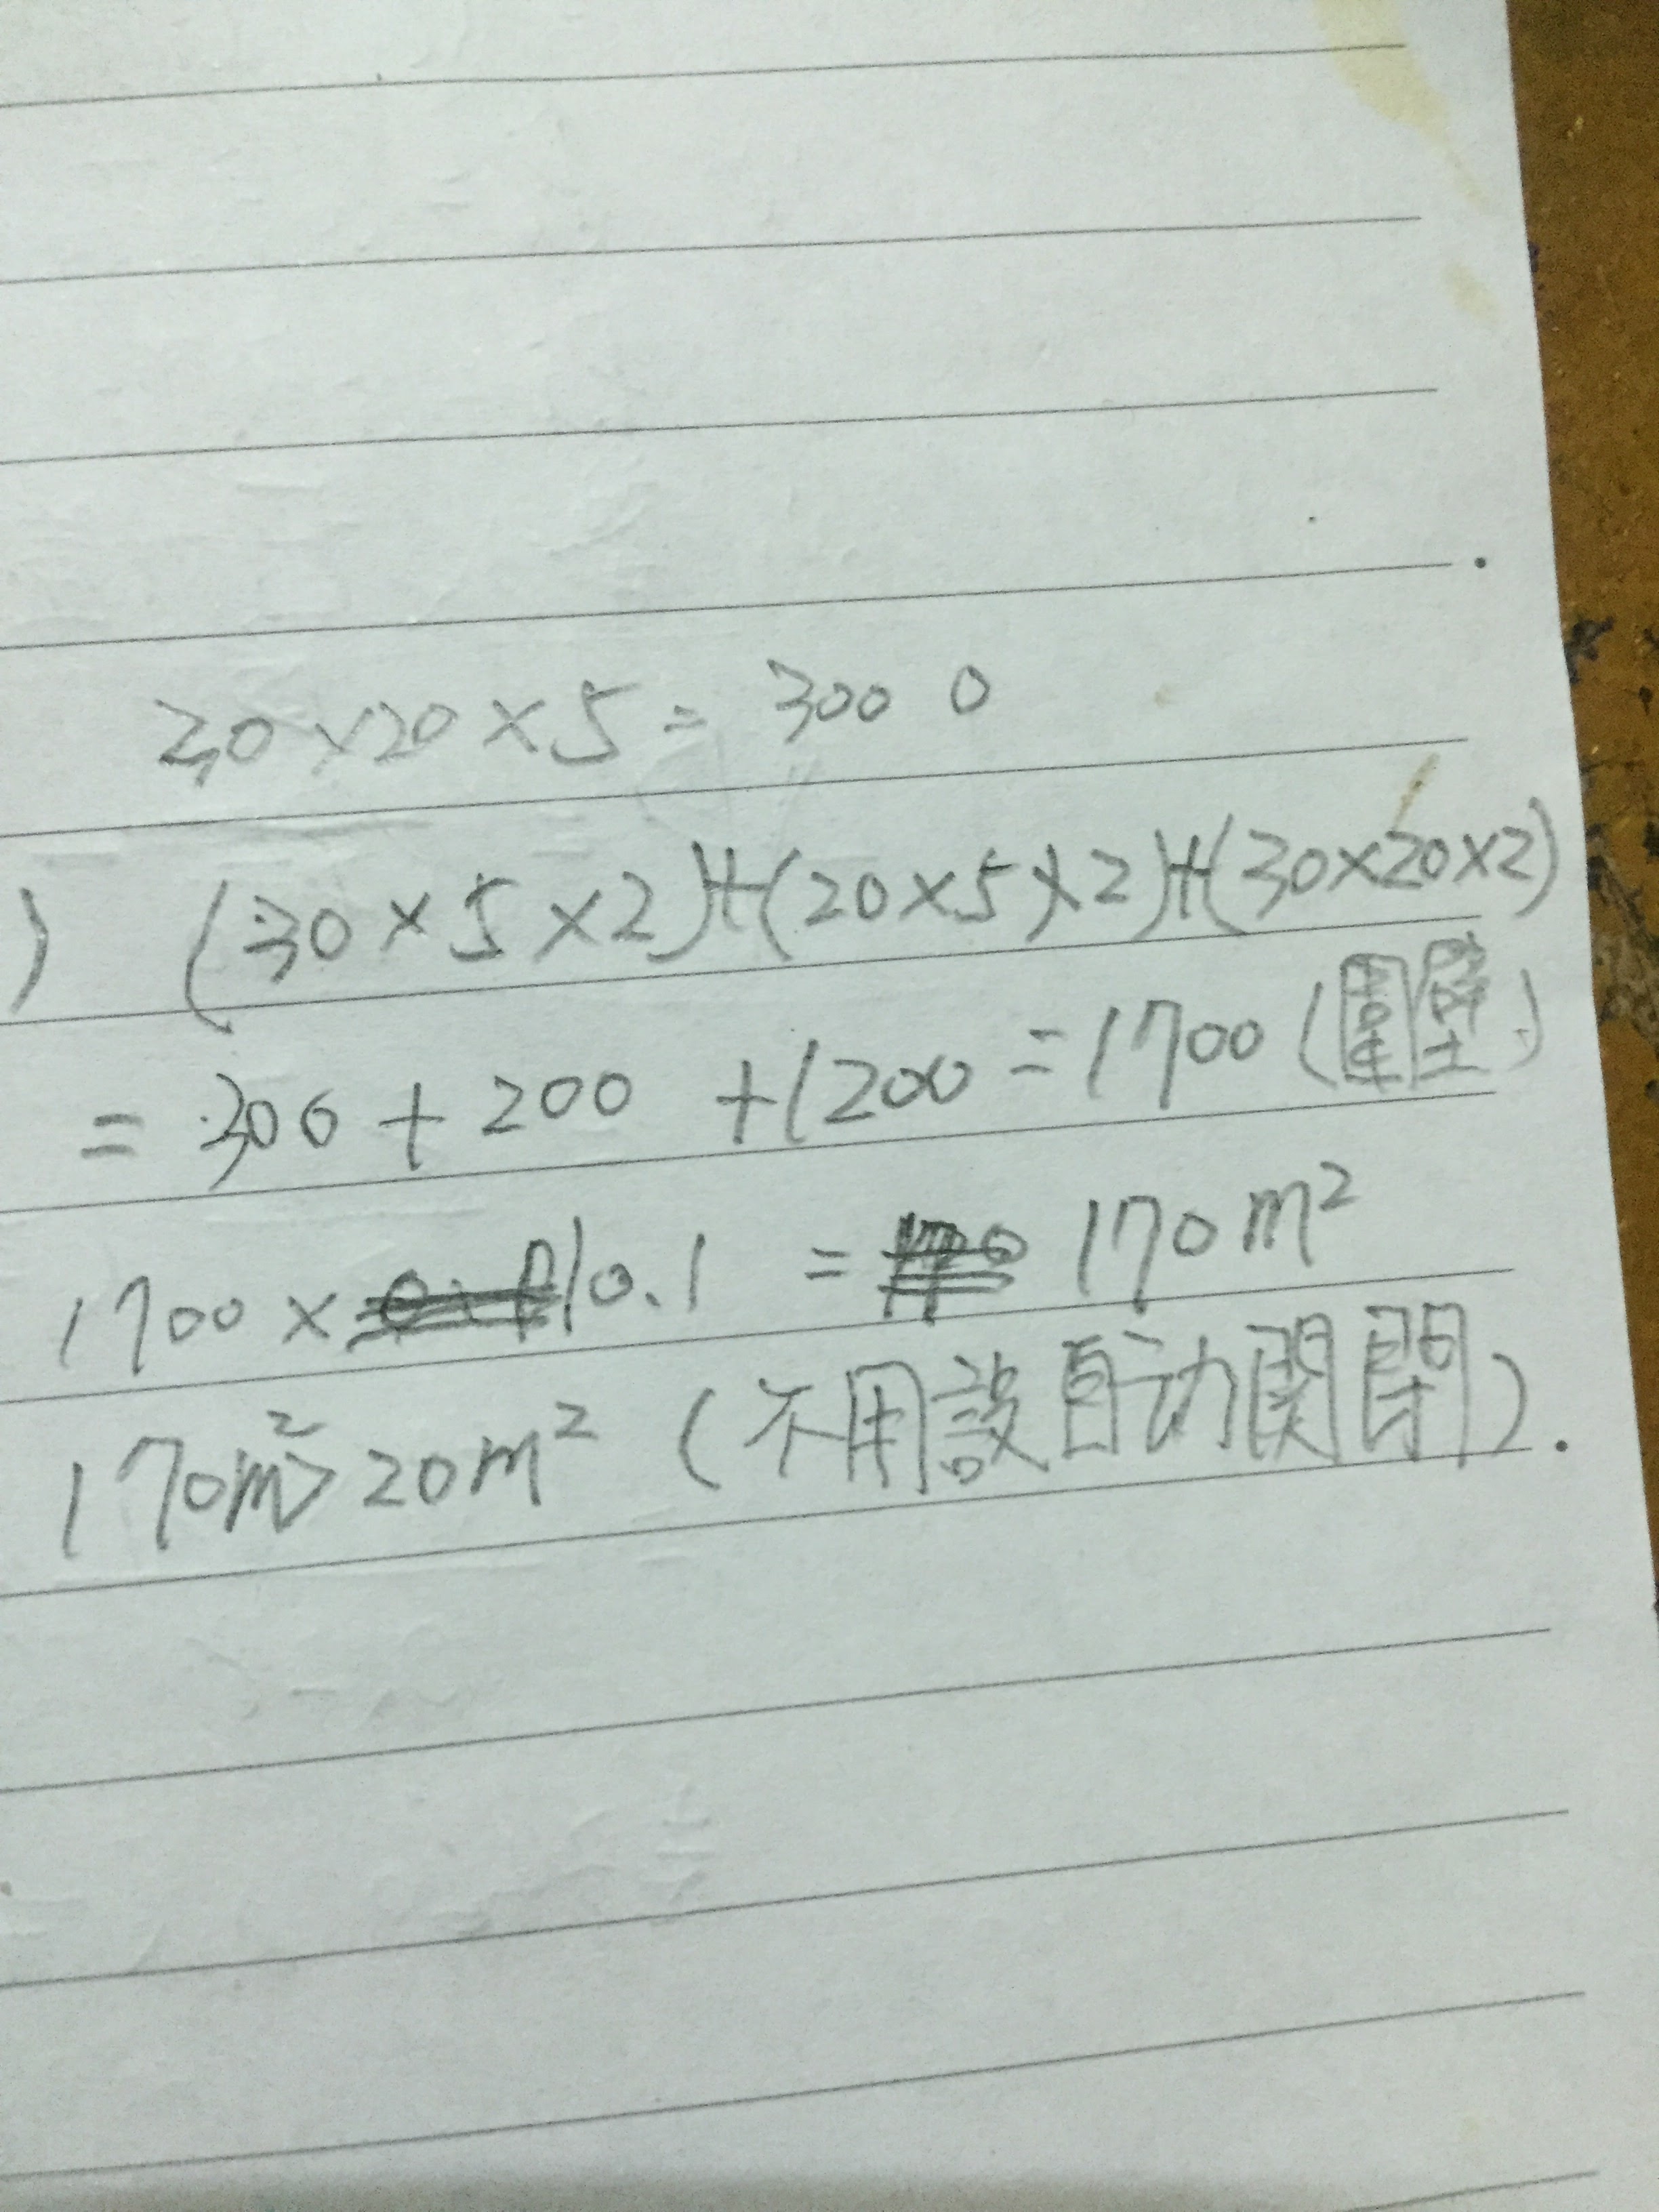 30×20×5=3000
) (30×5×2)+(20×5×2)+(30×20×2)
=300+200 +1200=1700(圍壁)
1700×0.1 = 170m²
170m²>20m²(不用設自动関閉).